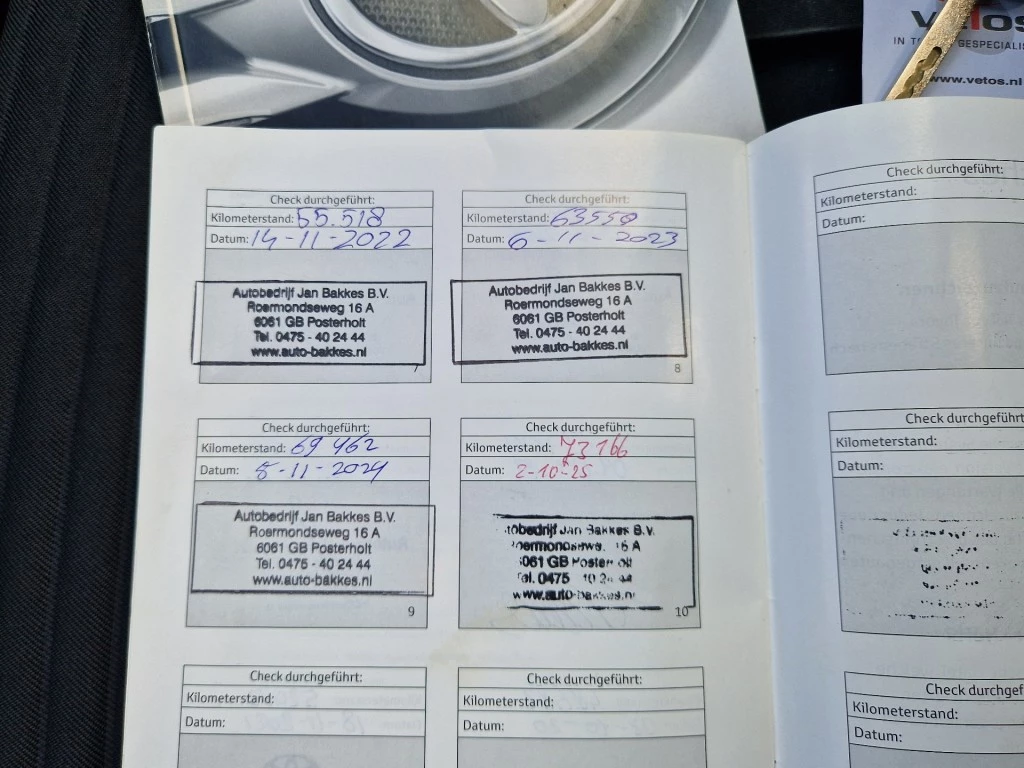 vetos
IN T
GESPECIALIS
www.vetos.nl
Check durchgeführt:
Kilometerstand: 55.518
Datum: 14-11-2022
Autobedrijf Jan Bakkes B.V.
Roermondseweg 16 A
6061 GB Posterholt
Tel. 0475 - 40 24 44
www.auto-bakkes.nl
7
Check durchgeführt:
Kilometerstand: 63550
Datum: 6-11-2023
Autobedrijf Jan Bakkes B.V.
Roermondseweg 16 A
6061 GB Posterholt
Tel. 0475 - 40 24 44
www.auto-bakkes.nl
8
Check durchgeführt:
Kilometerstand: 69 462
Datum: 5-11-2024
Autobedrijf Jan Bakkes B.V.
Roermondseweg 16 A
6061 GB Posterholt
Tel. 0475 - 40 24 44
www.auto-bakkes.nl
9
Check durchgeführt:
Kilometerstand: 73 166
Datum: 2-10-25
tobedrijf Jan Bakkes B.V.
oermondsewe. 16 A
061 GB Posterholt
Tel. 0475 40 24 44
www.auto-bakkes.nl
10
Check durchgeführt:
Kilometerstand:
Datum:
Check durchgeführt:
Kilometerstand:
Datum:
Check durchgeführt:
Kilometerstand:
Datum:
Check durchgeführt
Kilometerstand:
Datum:
Check durchgef
Kilometerstand:
Datum: